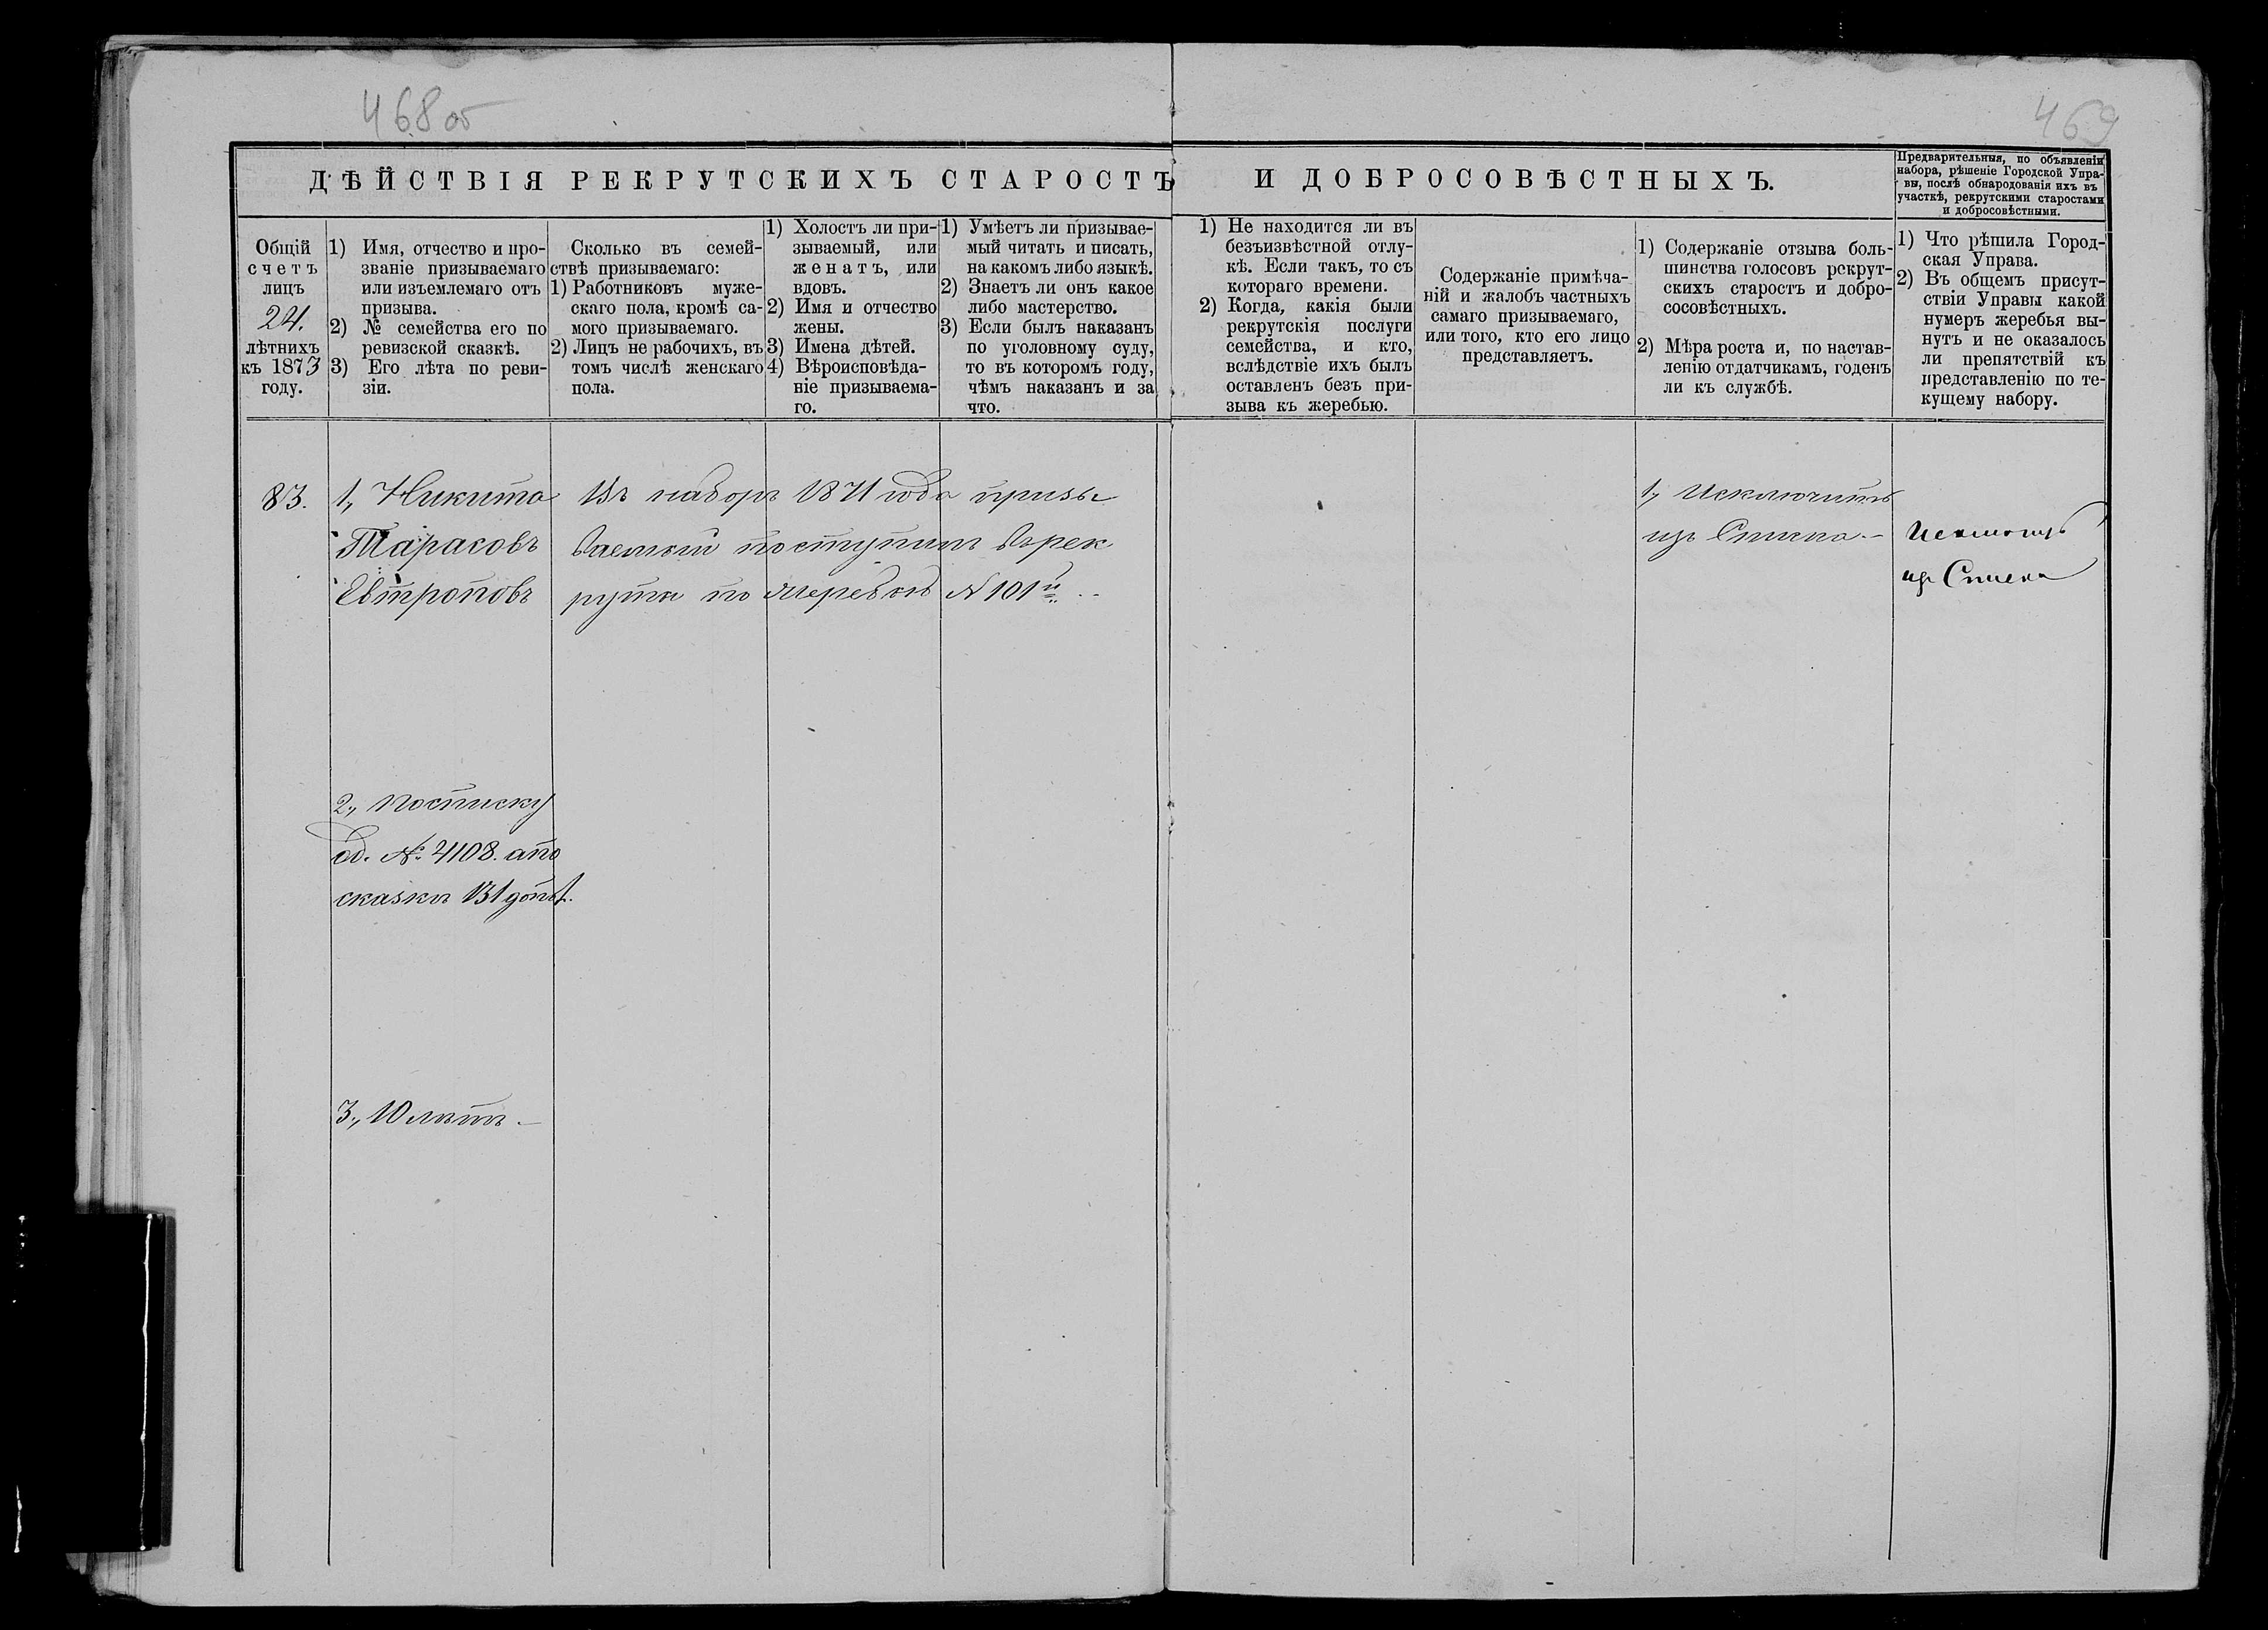 468 об
469
ДѢЙСТВІЯ РЕКРУТСКИХЪ СТАРОСТЪ И ДОБРОСОВѢСТНЫХЪ.
Предварительныя, по объявленіи
набора, рѣшеніе Городской Упра-
вы, послѣ обнародованія ихъ въ
участкѣ, рекрутскими старостами
и добросовѣстными.
Общій
счетъ
лицъ
24.
лѣтнихъ
къ 1873
году.
1) Имя, отчество и про-
званіе призываемаго
или изъемлемаго отъ
призыва.
2) № семейства его по
ревизской сказкѣ.
3) Его лѣта по реви-
зіи.
Сколько въ семей-
ствѣ призываемаго:
1) Работниковъ муже-
скаго пола, кромѣ са-
мого призываемаго.
2) Лицъ не рабочихъ, въ
томъ числѣ женскаго
пола.
1) Холостъ ли при-
зываемый, или
женатъ, или
вдовъ.
2) Имя и отчество
жены.
3) Имена дѣтей.
4) Вѣроисповѣда-
ніе призываема-
го.
1) Умѣетъ ли призывае-
мый читать и писать,
на какомъ либо языкѣ.
2) Знаетъ ли онъ какое
либо мастерство.
3) Если былъ наказанъ
по уголовному суду,
то въ которомъ году,
чѣмъ наказанъ и за
что.
1) Не находится ли въ
безъизвѣстной отлу-
кѣ. Если такъ, то съ
котораго времени.
2) Когда, какія были
рекрутскія послуги
семейства, и кто,
вслѣдствіе ихъ былъ
оставленъ безъ при-
зыва къ жеребью.
Содержаніе примѣча-
ній и жалобъ частныхъ
самаго призываемаго,
или того, кто его лицо
представляетъ.
1) Содержаніе отзыва боль-
шинства голосовъ рекрут-
скихъ старостъ и добро-
сосовѣстныхъ.
2) Мѣра роста и, по настав-
ленію отдатчикамъ, годенъ
ли къ службѣ.
1) Что рѣшила Город-
ская Управа.
2) Въ общемъ присут-
ствіи Управы какой
нумеръ жеребья вы-
нутъ и не оказалось
ли препятствій къ
представленію по те-
кущему набору.
83.
1, Никита
Тарасовъ
Евтроповъ
Въ наборъ 1871 года призы
ваемый поступилъ въ рек
руты по жеребью № 101й
1, Исключить
изъ Списка.
Исключить
изъ Списка
2, по списку
об. № 4108. а по
сказкѣ 131 доп.
3, 10 лѣтъ.